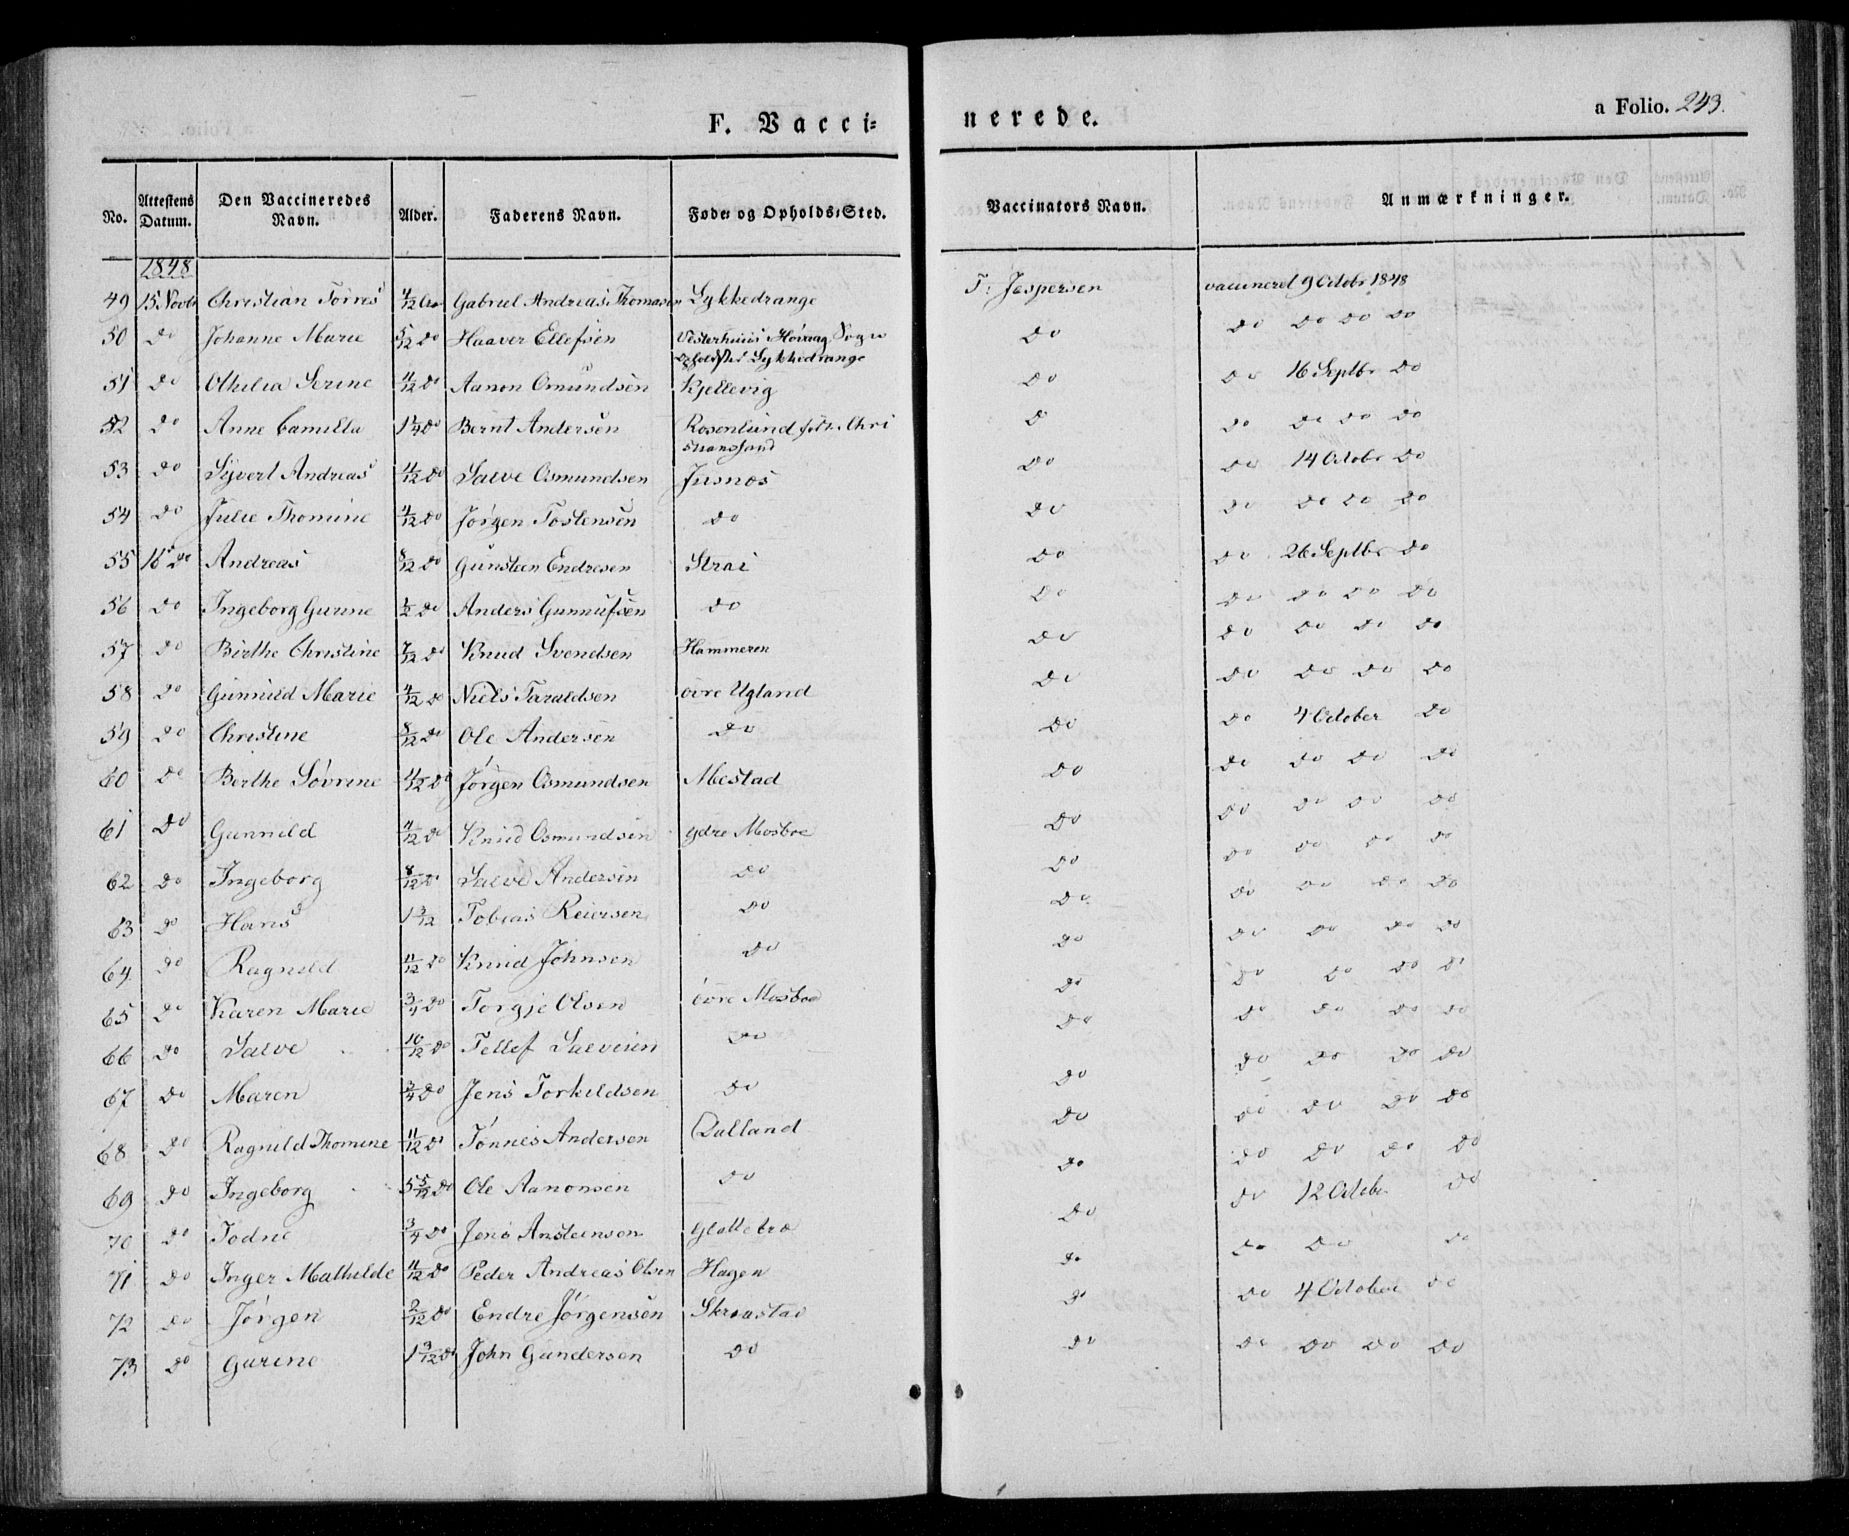 F. Vacci= nerede. a Folio. 243.
No. Attestens Datum. Den Vaccineredes Navn. Alder. Faderens Navn. Føde= og Opholds=Sted. Vaccinators Navn. Anmærkninger.
1848
49 15 Novbr Christian Torres 4/12 Gabriel Andreas Thomasen Lykkedrange T: Jespersen vaccineret 9 Octobr 1848
50 Do Johanne Marie 5/12 Do Haaver Ellefsen Vesterhuus i Høivaag Sogn Do Do Do Do Do
Opholdsted Lykkedrange
51 Do Othilia Serine 4/12 Do Aanon Omundsen Kjellevig Do Do 16 Septbr Do
52 Do Anne Camilla 1 1/4 Do Bernt Andersen Rosenlund født i Chri D Do Do Do Do
stianssand
53 Do Syvert Andreas 4/12 Do Salve Osmundsen Jusnes Do Do 14 Octobr Do
54 Do Julie Thomine 4/12 Do Jørgen Tostensen Do Do Do Do Do Do
55 16 Do Andreas 8/12 Do Gunsteen Endresen Strai Do Do 26 Septbr Do
56 Do Ingeborg Gurine 1/2 Do Anders Gunnufsen Do Do Do Do Do Do
57 Do Birthe Christine 7/12 Do Knud Svendsen Hammeren Do Do Do Do Do
58 Do Gunnild Marie 4/12 Do Niels Taraldsen øvre Ugland Do Do Do Do Do
59 Do Christine 8/12 Do Ole Andersen Do Do Do 4 October Do
60 Do Berthe Søvrine 4/12 Do Jørgen Osmundsen Mestad Do Do Do Do Do
61 Do Gunnild 4/12 Do Knud Osmundsen ydre Mosboe Do Do Do Do Do
62 Do Ingeborg 8/12 Do Salve Andersen Do Do Do Do Do Do
63 Do Hans 1 3/12 Tobias Reiersen Do Do Do Do Do Do
64 Do Ragnild 11/12 Do Knud Johnsen Do Do Do Do Do Do
65 Do Karen Marie 3/4 Do Torgje Olsen øvre Mosboe Do Do Do Do Do
66 Do Salve 10/12 Do Tellef Salvesen Do Do Do Do Do Do
67 Do Maren 3/4 Do Jens Torkildsen Do Do Do Do Do Do
68 Do Ragnild Thomine 11/12 Do Tønnes Andersen Dalland Do Do Do Do Do
69 Do Ingeborg 5 5/12 Do Ole Aanonsen Do Do Do Do Do Do
70 Do Todne 3/4 Do Jens Ansteensen Glattetræ Do Do 12 Octobr Do
71 Do Inger Mathilde 11/12 Do Peder Andreas Olsen Hagen Do Do Do Do
72 Do Jørgen 2/12 Do Endre Jørgensen Skraastad Do Do 4 October Do
73 Do Gurine 1 3/12 Do John Gundersen Do Do Do Do Do Do